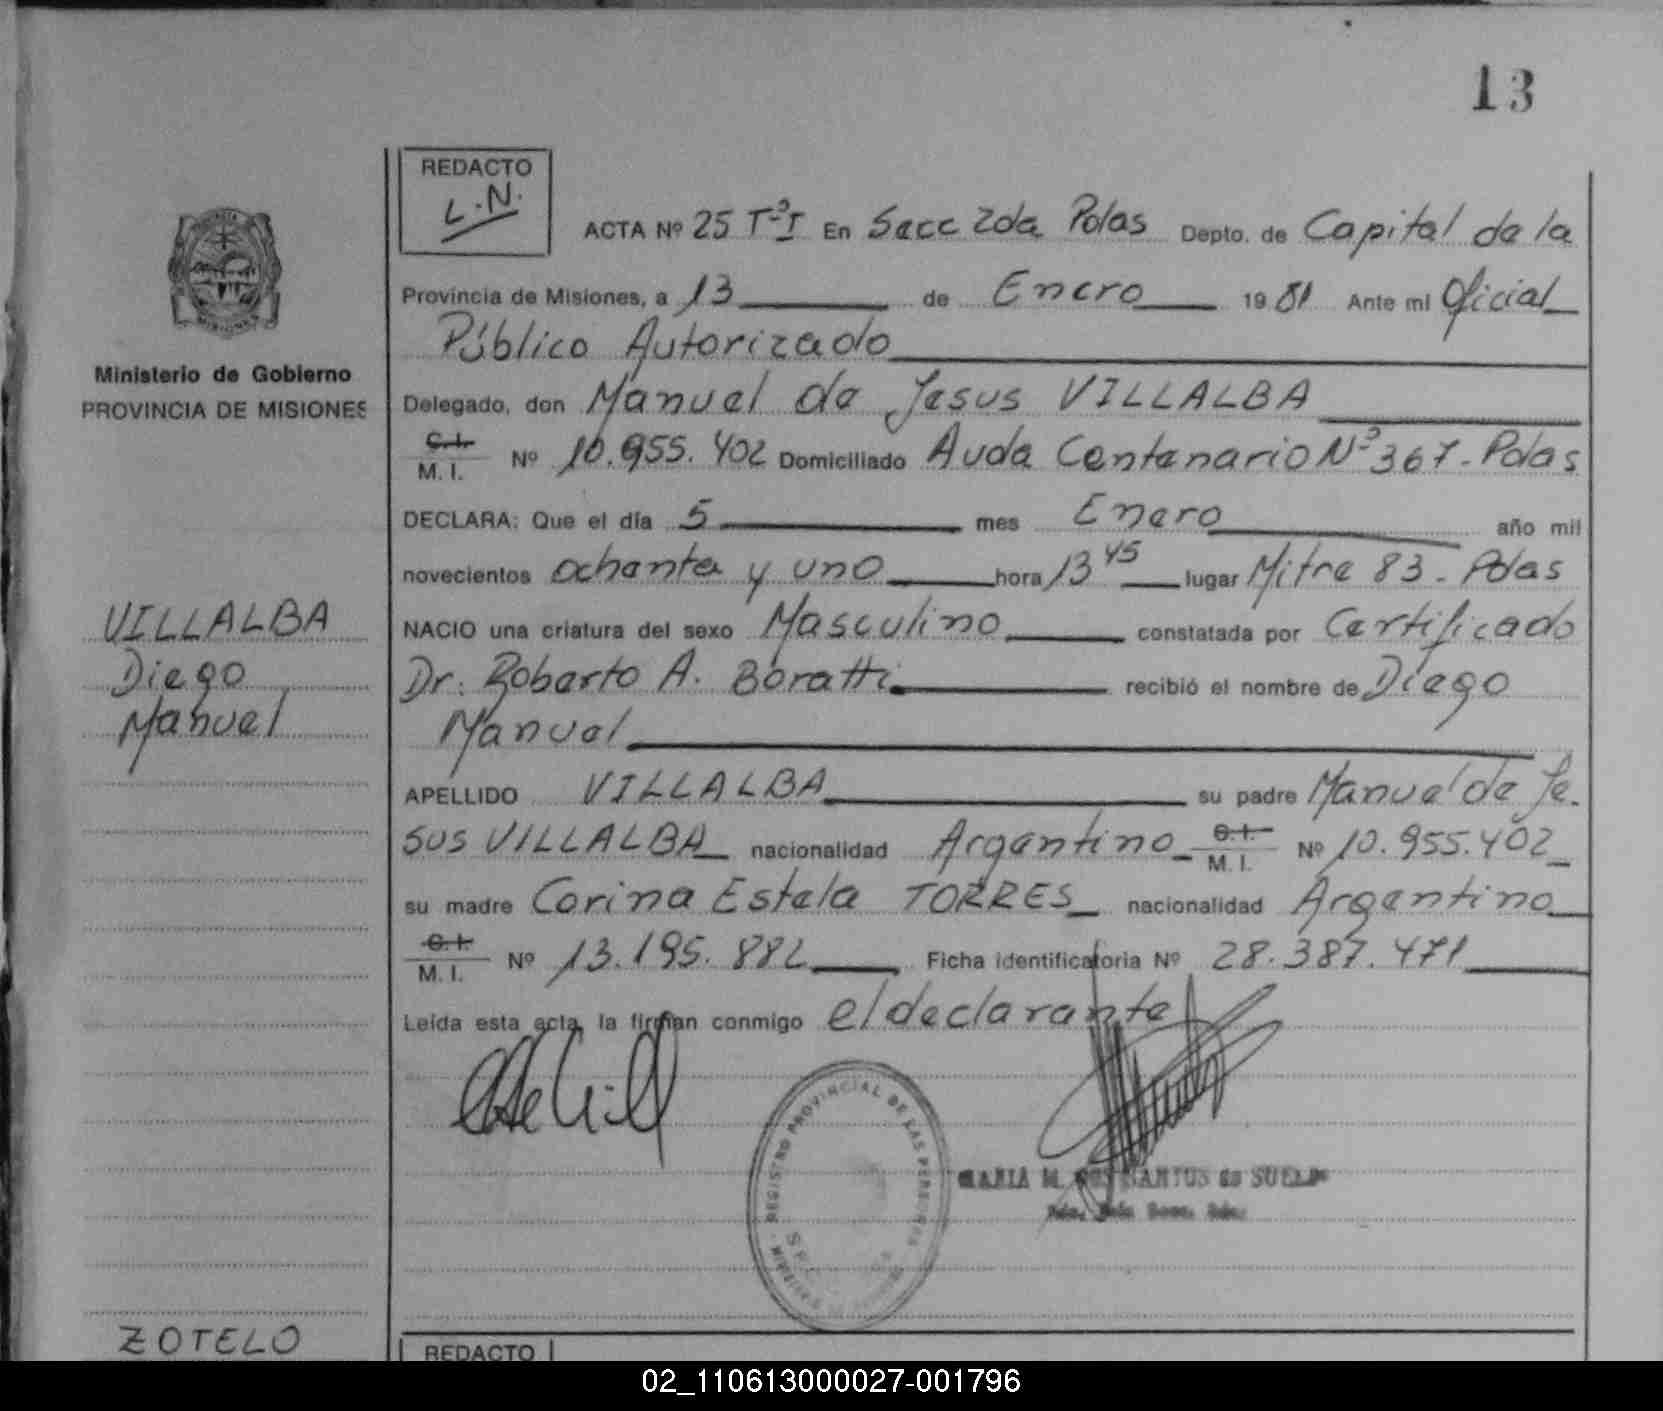 13
REDACTO
L.N.
ACTA Nº 25 Tº I En Secc 2da Pdas Depto. de Capital de la
Provincia de Misiones, a 13 de Enero 19 81 Ante mi Oficial
Público Autorizado
Ministerio de Gobierno
PROVINCIA DE MISIONES
Delegado, don Manuel de Jesus VILLALBA
C.I.
M. I. Nº 10.955.402 Domiciliado Avda Centenario Nº 367 - Pdas
DECLARA: Que el día 5 mes Enero año mil
novecientos ochenta y uno hora 13 45 lugar Mitre 83 - Pdas
VILLALBA
Diego
Manuel
NACIO una criatura del sexo Masculino constatada por Certificado
Dr. Roberto A. Boratti recibió el nombre de Diego
Manuel
APELLIDO VILLALBA su padre Manuel de Je-
sus VILLALBA nacionalidad Argentino C.I.
M. I. Nº 10.955.402
su madre Corina Estela TORRES nacionalidad Argentino
C.I.
M. I. Nº 13.195.882 Ficha identificatoria Nº 28.387.471
Leída esta acta, la firman conmigo el declarante
REGISTRO PROVINCIAL DE LAS PERSONAS
MARIA M. DOS SANTOS de SUELD
ZOTELO
REDACTO
02_110613000027-001796